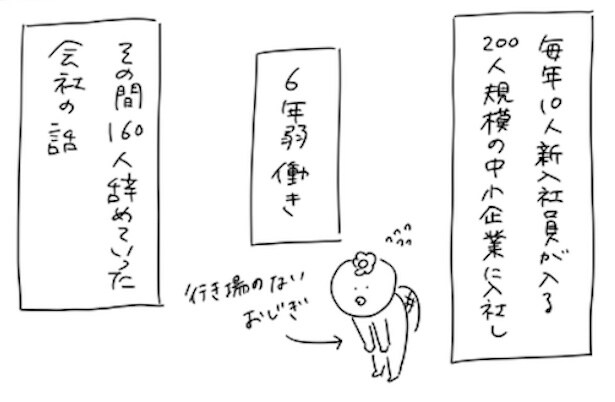 毎年10人新入社員が入る
200人規模の中小企業に入社し
6年弱働き
その間160人辞めていった
会社の話
行き場のない
おじぎ